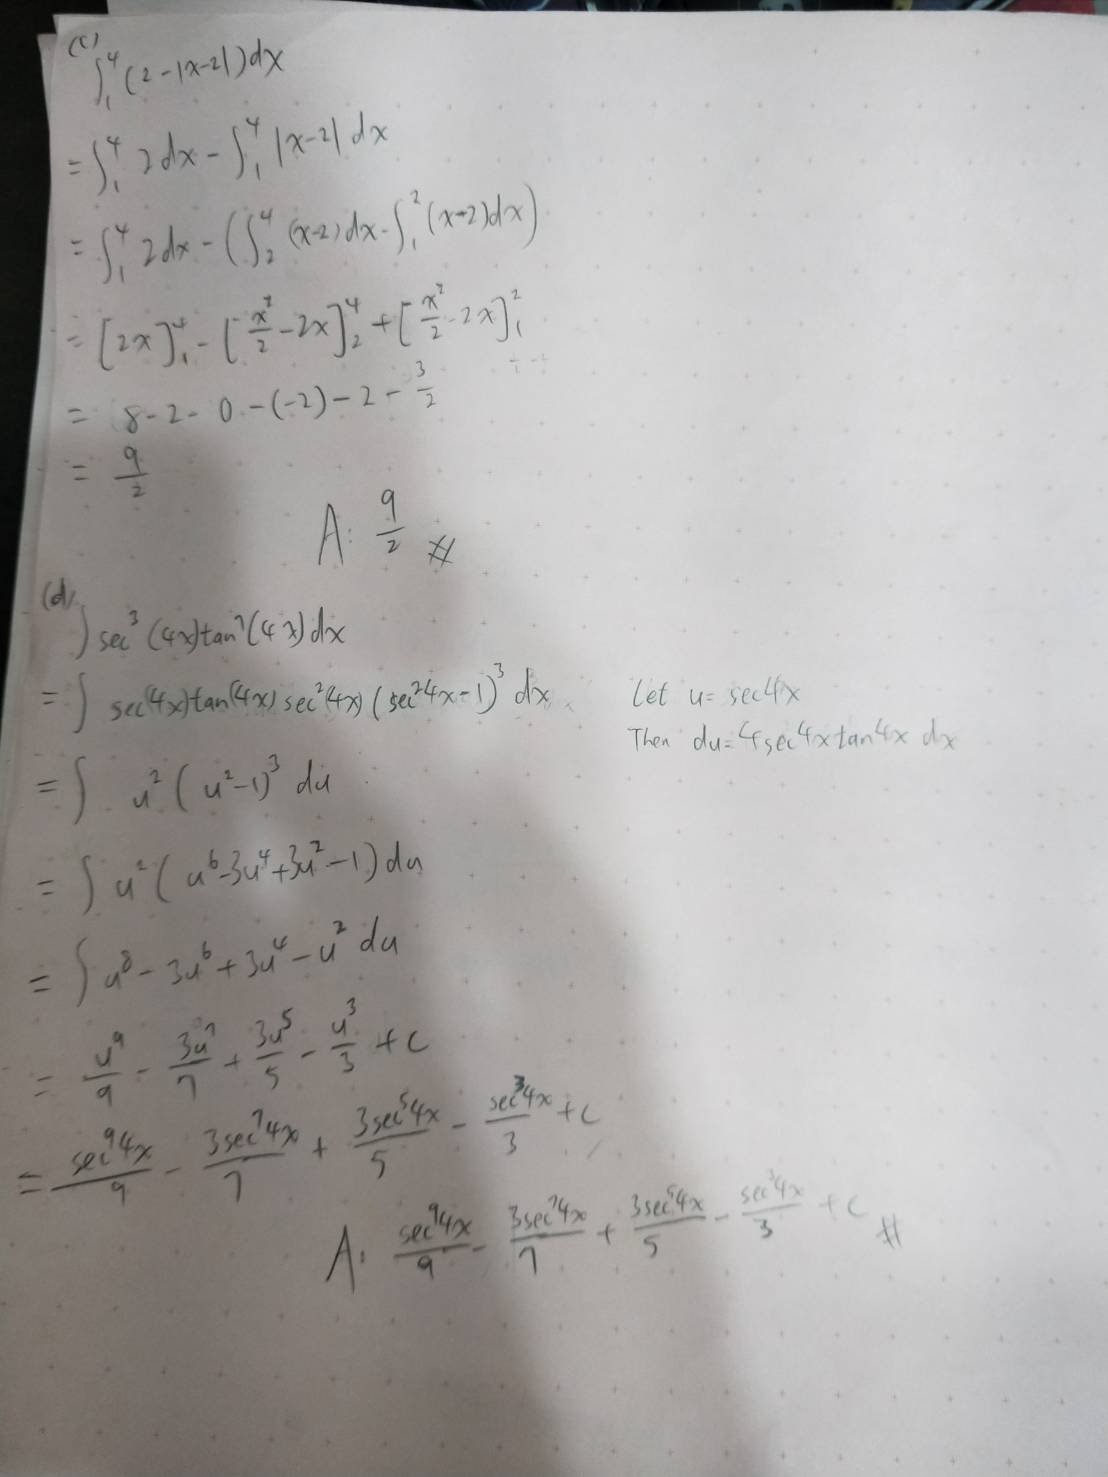 (c)
∫₁⁴ (2-|x-2|)dx
= ∫₁⁴ 2dx - ∫₁⁴ |x-2| dx
= ∫₁⁴ 2dx - (∫₂⁴ (x-2)dx - ∫₁² (x-2)dx)
= [2x]₁⁴ - [x²/2 - 2x]₂⁴ + [x²/2 - 2x]₁²
= 8-2-0-(-2)-2-3/2
= 9/2
A: 9/2 #
(d)
∫ sec³(4x)tan⁷(4x)dx
= ∫ sec(4x)tan(4x) sec²(4x) (sec²4x-1)³ dx Let u= sec4x
Then du=4sec4xtan4x dx
= ∫ u² (u²-1)³ du
= ∫ u² (u⁶-3u⁴+3u²-1) du
= ∫ u⁸ - 3u⁶ + 3u⁴ - u² du
= u⁹/9 - 3u⁷/7 + 3u⁵/5 - u³/3 + c
= sec⁹4x/9 - 3sec⁷4x/7 + 3sec⁵4x/5 - sec³4x/3 + c
A: sec⁹4x/9 - 3sec⁷4x/7 + 3sec⁵4x/5 - sec³4x/3 + c #